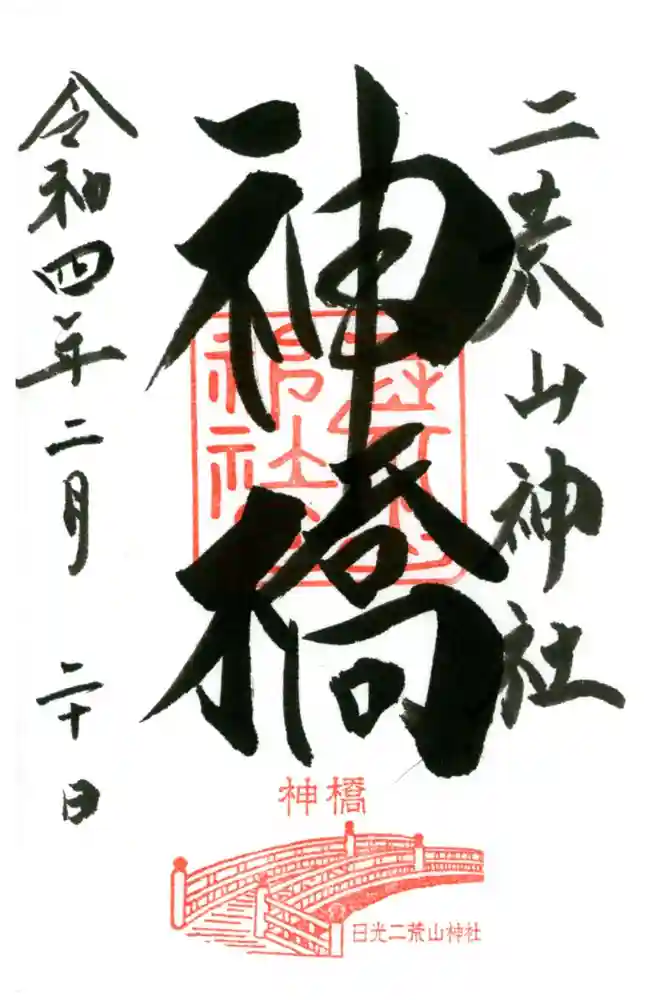 二荒山神社
神橋
令和四年二月二十日
神橋
日光二荒山神社